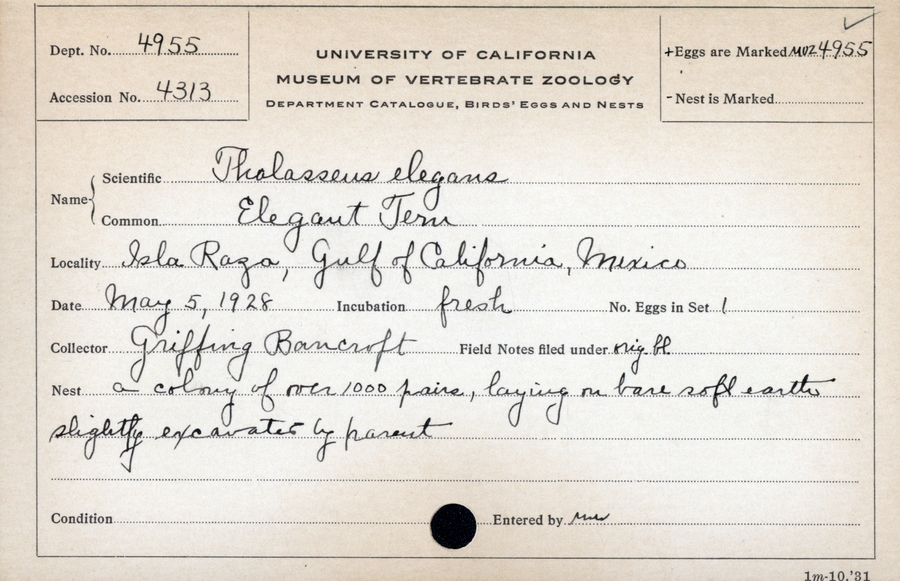 Dept. No. 4955
Accession No. 4313
UNIVERSITY OF CALIFORNIA
MUSEUM OF VERTEBRATE ZOOLOGY
DEPARTMENT CATALOGUE, BIRDS' EGGS AND NESTS
+Eggs are Marked MVZ 4955
-Nest is Marked
Name Scientific Thalasseus elegans
Common Elegant Tern
Locality Isla Raza, Gulf of California, Mexico
Date May 5, 1928 Incubation fresh No. Eggs in Set 1
Collector Griffing Bancroft Field Notes filed under orig bl.
Nest a colony of over 1000 pairs, laying on bare soft earth
slightly excavated by parent
Condition Entered by
1m-10,'31